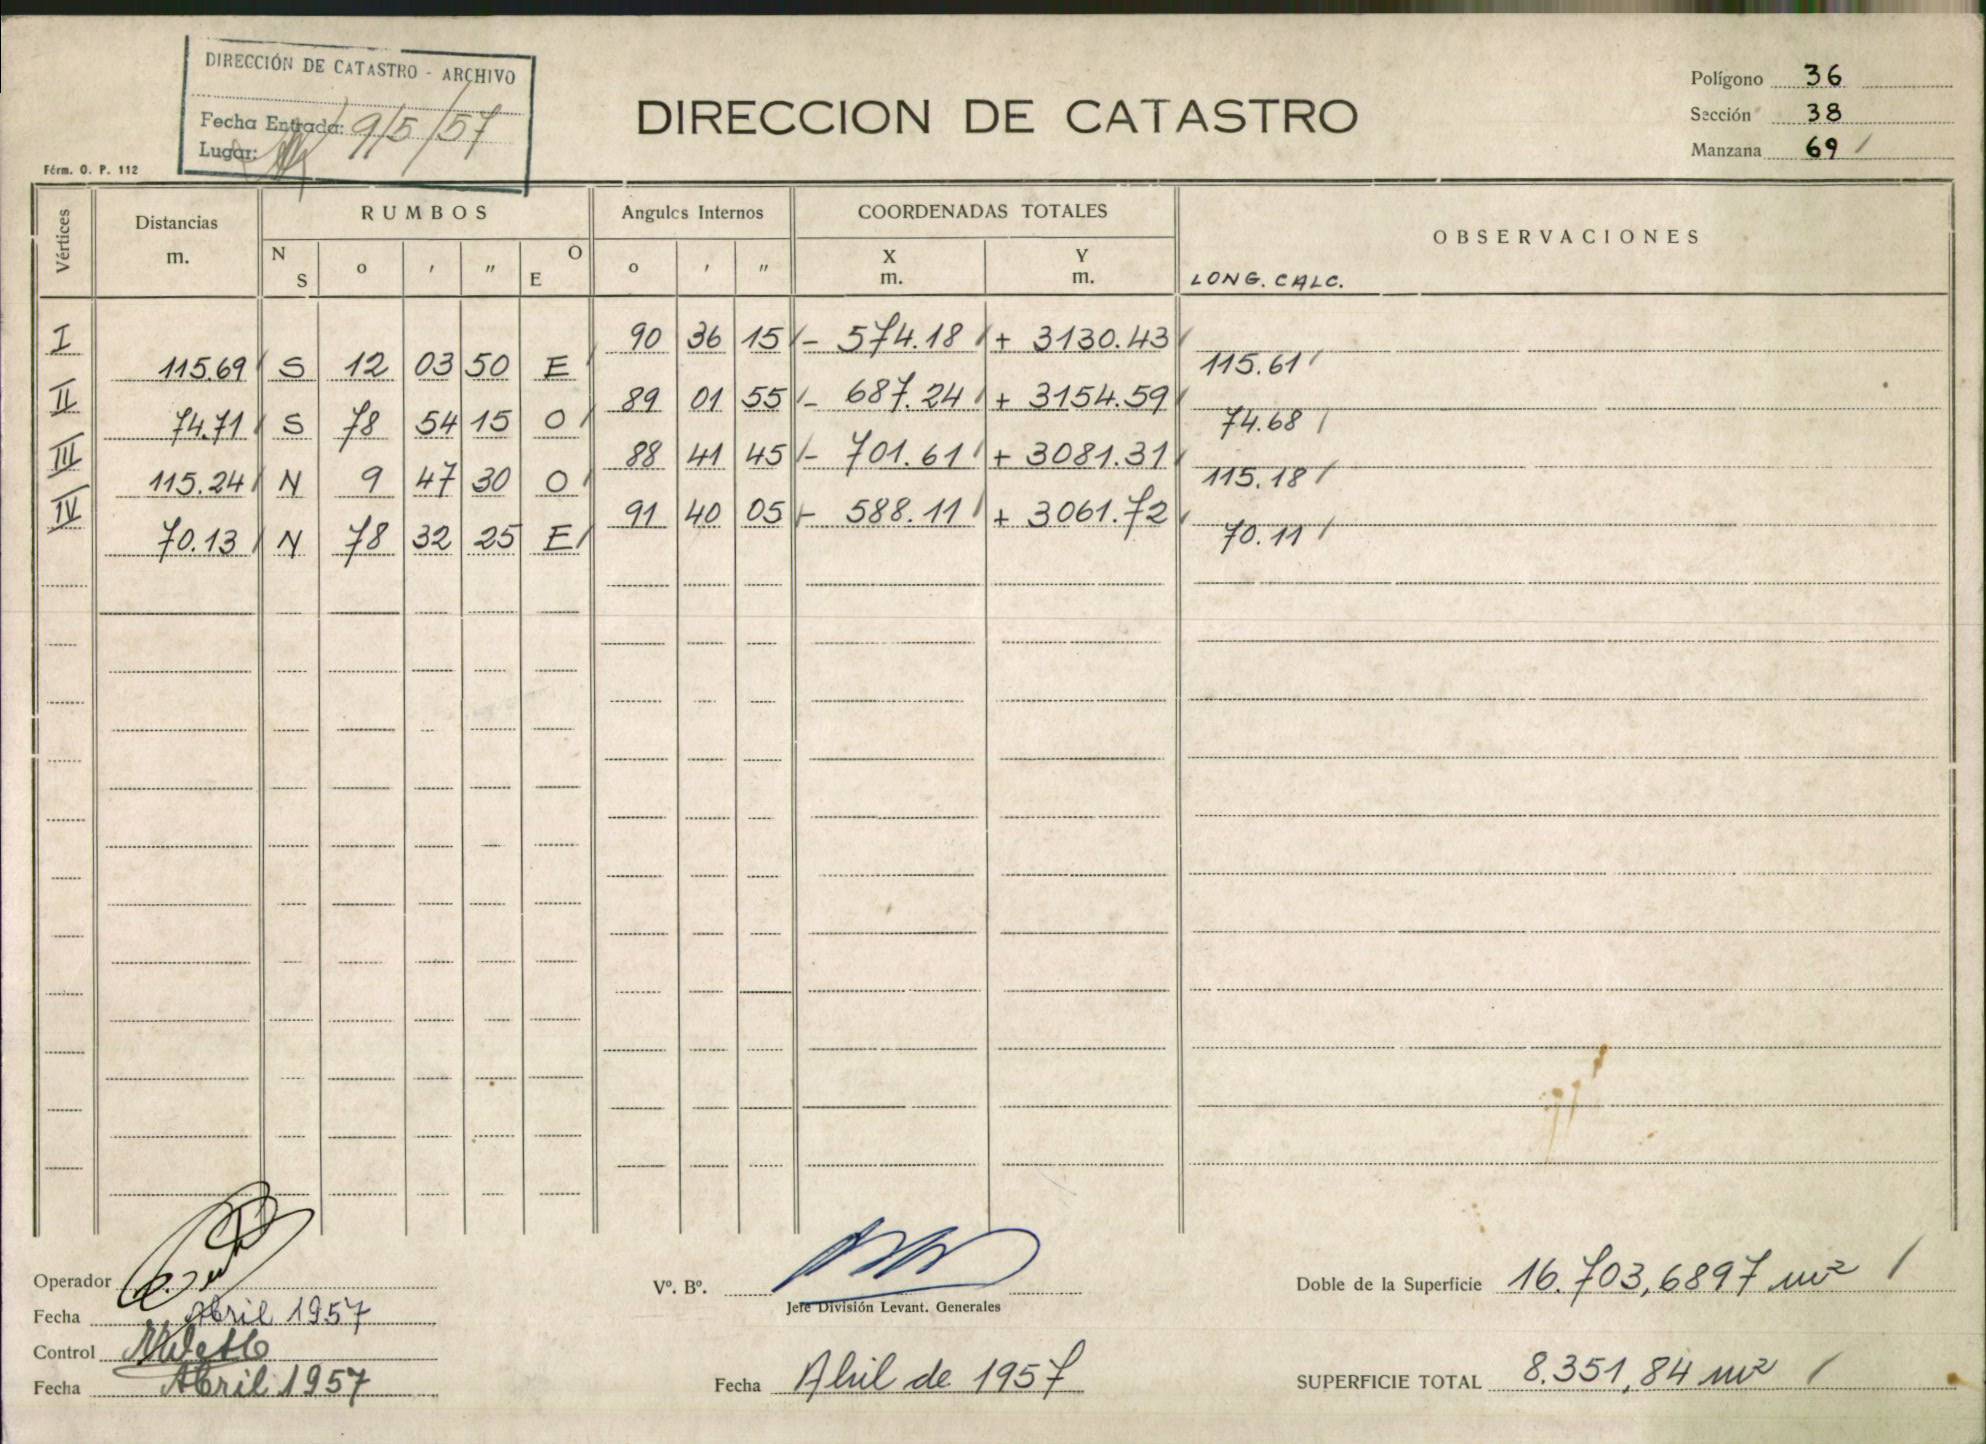 DIRECCIÓN DE CATASTRO - ARCHIVO
Fecha Entrada: 9/5/57
Lugar:
Fórm. O. P. 112
DIRECCION DE CATASTRO
Polígono 36
Sección 38
Manzana 69 /
Vértices Distancias m. RUMBOS Angulos Internos COORDENADAS TOTALES OBSERVACIONES
N S o ' " O E o ' " X m. Y m. LONG. CALC.
I 90 36 15 - 574.18 + 3130.43
115.69 S 12 03 50 E 115.61
II 89 01 55 - 687.24 + 3154.59
74.71 S 78 54 15 O 74.68
III 88 41 45 - 701.61 + 3081.31
115.24 N 9 47 30 O 115.18
IV 91 40 05 - 588.11 + 3061.72
70.13 N 78 32 25 E 70.11
Operador
Fecha Abril 1957
Control
Fecha Abril 1957
Vº. Bº.
Jefe División Levant. Generales
Fecha Abril de 1957
Doble de la Superficie 16.703,6897 m² /
SUPERFICIE TOTAL 8.351,84 m² /